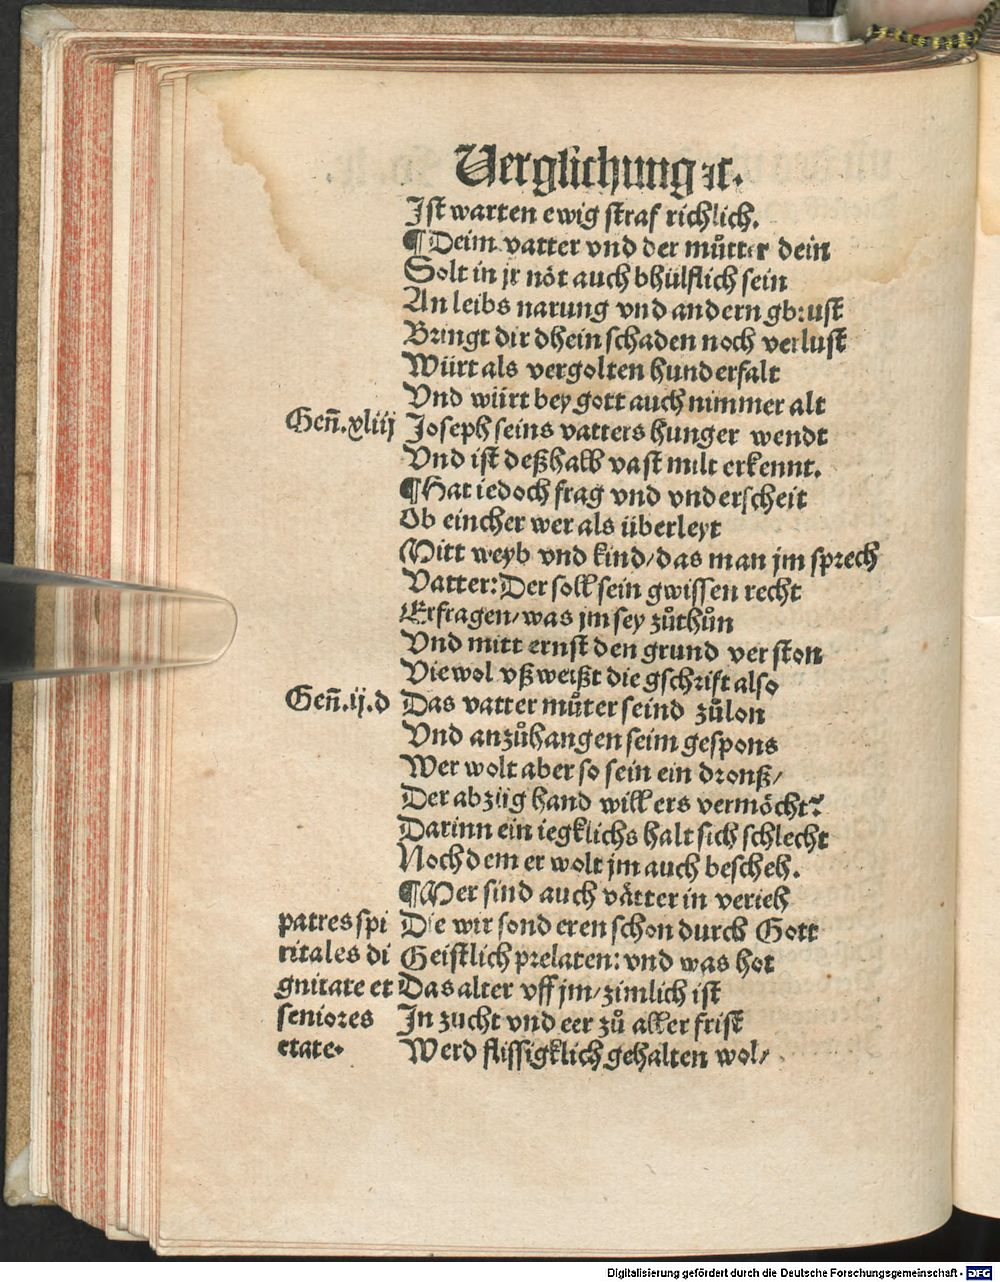 Verglichung ⁊c.
Jst warten ewig straf richlich.
¶Deim vatter vnd der můtter dein
Solt in jr nöt auch bhülflich sein
An leibs narung vnd andern gbrust
Bringt dir dhein schaden noch verlust
Würt als vergolten hunderfalt
Vnd würt bey gott auch nimmer alt
Geñ.xliij Joseph seins vatters hunger wendt
Vnd ist deßhalb vast milt erkennt.
¶Hat iedoch frag vnd vnderscheit
Ob eincher wer als überleyt
Mitt weyb vnd kind/das man jm sprech
Vatter: Der soll sein gwissen recht
Erfragen/was jm sey zůthůn
Vnd mitt ernst den grund verston
Wiewol vßweißt die gschrift also
Geñ.ij.d Das vatter můter seind zůlon
Vnd anzůhangen seim gespons
Wer wolt aber so sein ein dronß/
Der abzüg hand will ers vermöcht?
Darinn ein iegklichs halt sich schlecht
Noch dem er wolt jm auch bescheh.
¶Mer sind auch vätter in verieh
patres spi Die wir sonderen schon durch Gott
ritales di Geistlich prelaten: vnd was hot
gnitate et Das alter vff jm/zimlich ist
seniores Jn zucht vnd eer zů aller frist
etate. Werd flissigklich gehalten wol/
Digitalisierung gefördert durch die Deutsche Forschungsgemeinschaft - DFG